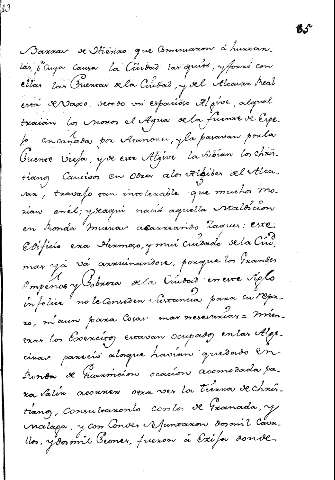 85
Barras de Hierro que comensaron á hurtar
las, pr. cuya causa la Ciudad las quitó, y formó con
ellas las Puertas de la Ciudad, y del Alcazar Real
está devaxo, siendo vn espacioso Algive, al qual
traían los Moros el Agua de la fuente de
encañada por Arcaduces, y la pasavan por la
Puente Vieja, y de este Algive la subian los chris
tianos Cautivos en Odres a los Algibes del Alca
zar, travajo tan intolerable que muchos mo
rian en él; y de aqui nació aquella Maldicion
en Ronda Mueras acarreando Zaques: este
edificio era Hermoso, y mui cuidado de la Ciud.
mas yá vá arruinandose, porque los Grandes
Empeños y Pobreza de la Ciudad en este Siglo
infelice no le conceden sustancia para su repa
ro, ni aun para cosas mas necesarias = Mien
tras los Exercitos estavan ocupados en las Alge
ciras parecio a los que havian quedado en
Ronda de Guarnicion ocacion acomodada pa
ra salir a correr otra vez la tierra de chris
tianos, consultaronlo con los de Granada, y
Malaga, y con Condes se juntaron dos mil Cava
llos, y dos mil Peones, fueron á Exija donde